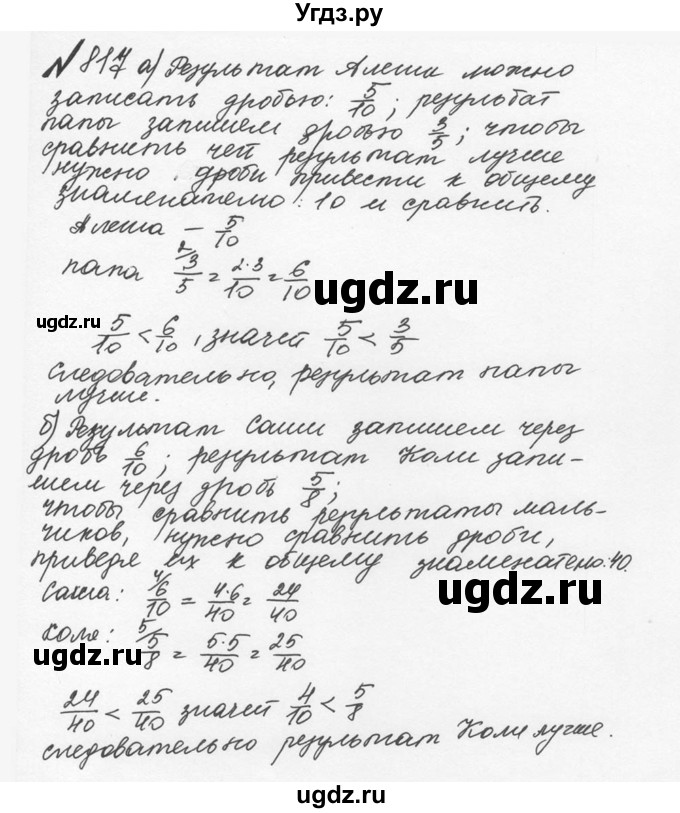 Угдз.ру
№ 817 а) Результат Алеши можно
записать дробью: 5/10; результат
папы запишем дробью 3/5; чтобы
сравнить чей результат лучше
нужно дроби привести к общему
знаменателю: 10 и сравнить.
Алеша – 5/10
папа 2/ 3/5 = 2·3/10 = 6/10
ugdz.ru
ugdz.ru
5/10 < 6/10, значит 5/10 < 3/5
Следовательно, результат папы
лучше.
б) Результат Саши запишем через
дробь 6/10; результат Коли запи-
шем через дробь 5/8;
чтобы сравнить результаты маль-
чиков, нужно сравнить дроби,
приведя их к общему знаменателю: 40.
Саша: 4/ 6/10 = 4·6/40 = 24/40
ugdz.ru
Коля: 5/ 5/8 = 5·5/40 = 25/40
ugdz.ru
24/40 < 25/40 значит 4/10 < 5/8
следовательно результат Коли лучше.
ugdz.ru